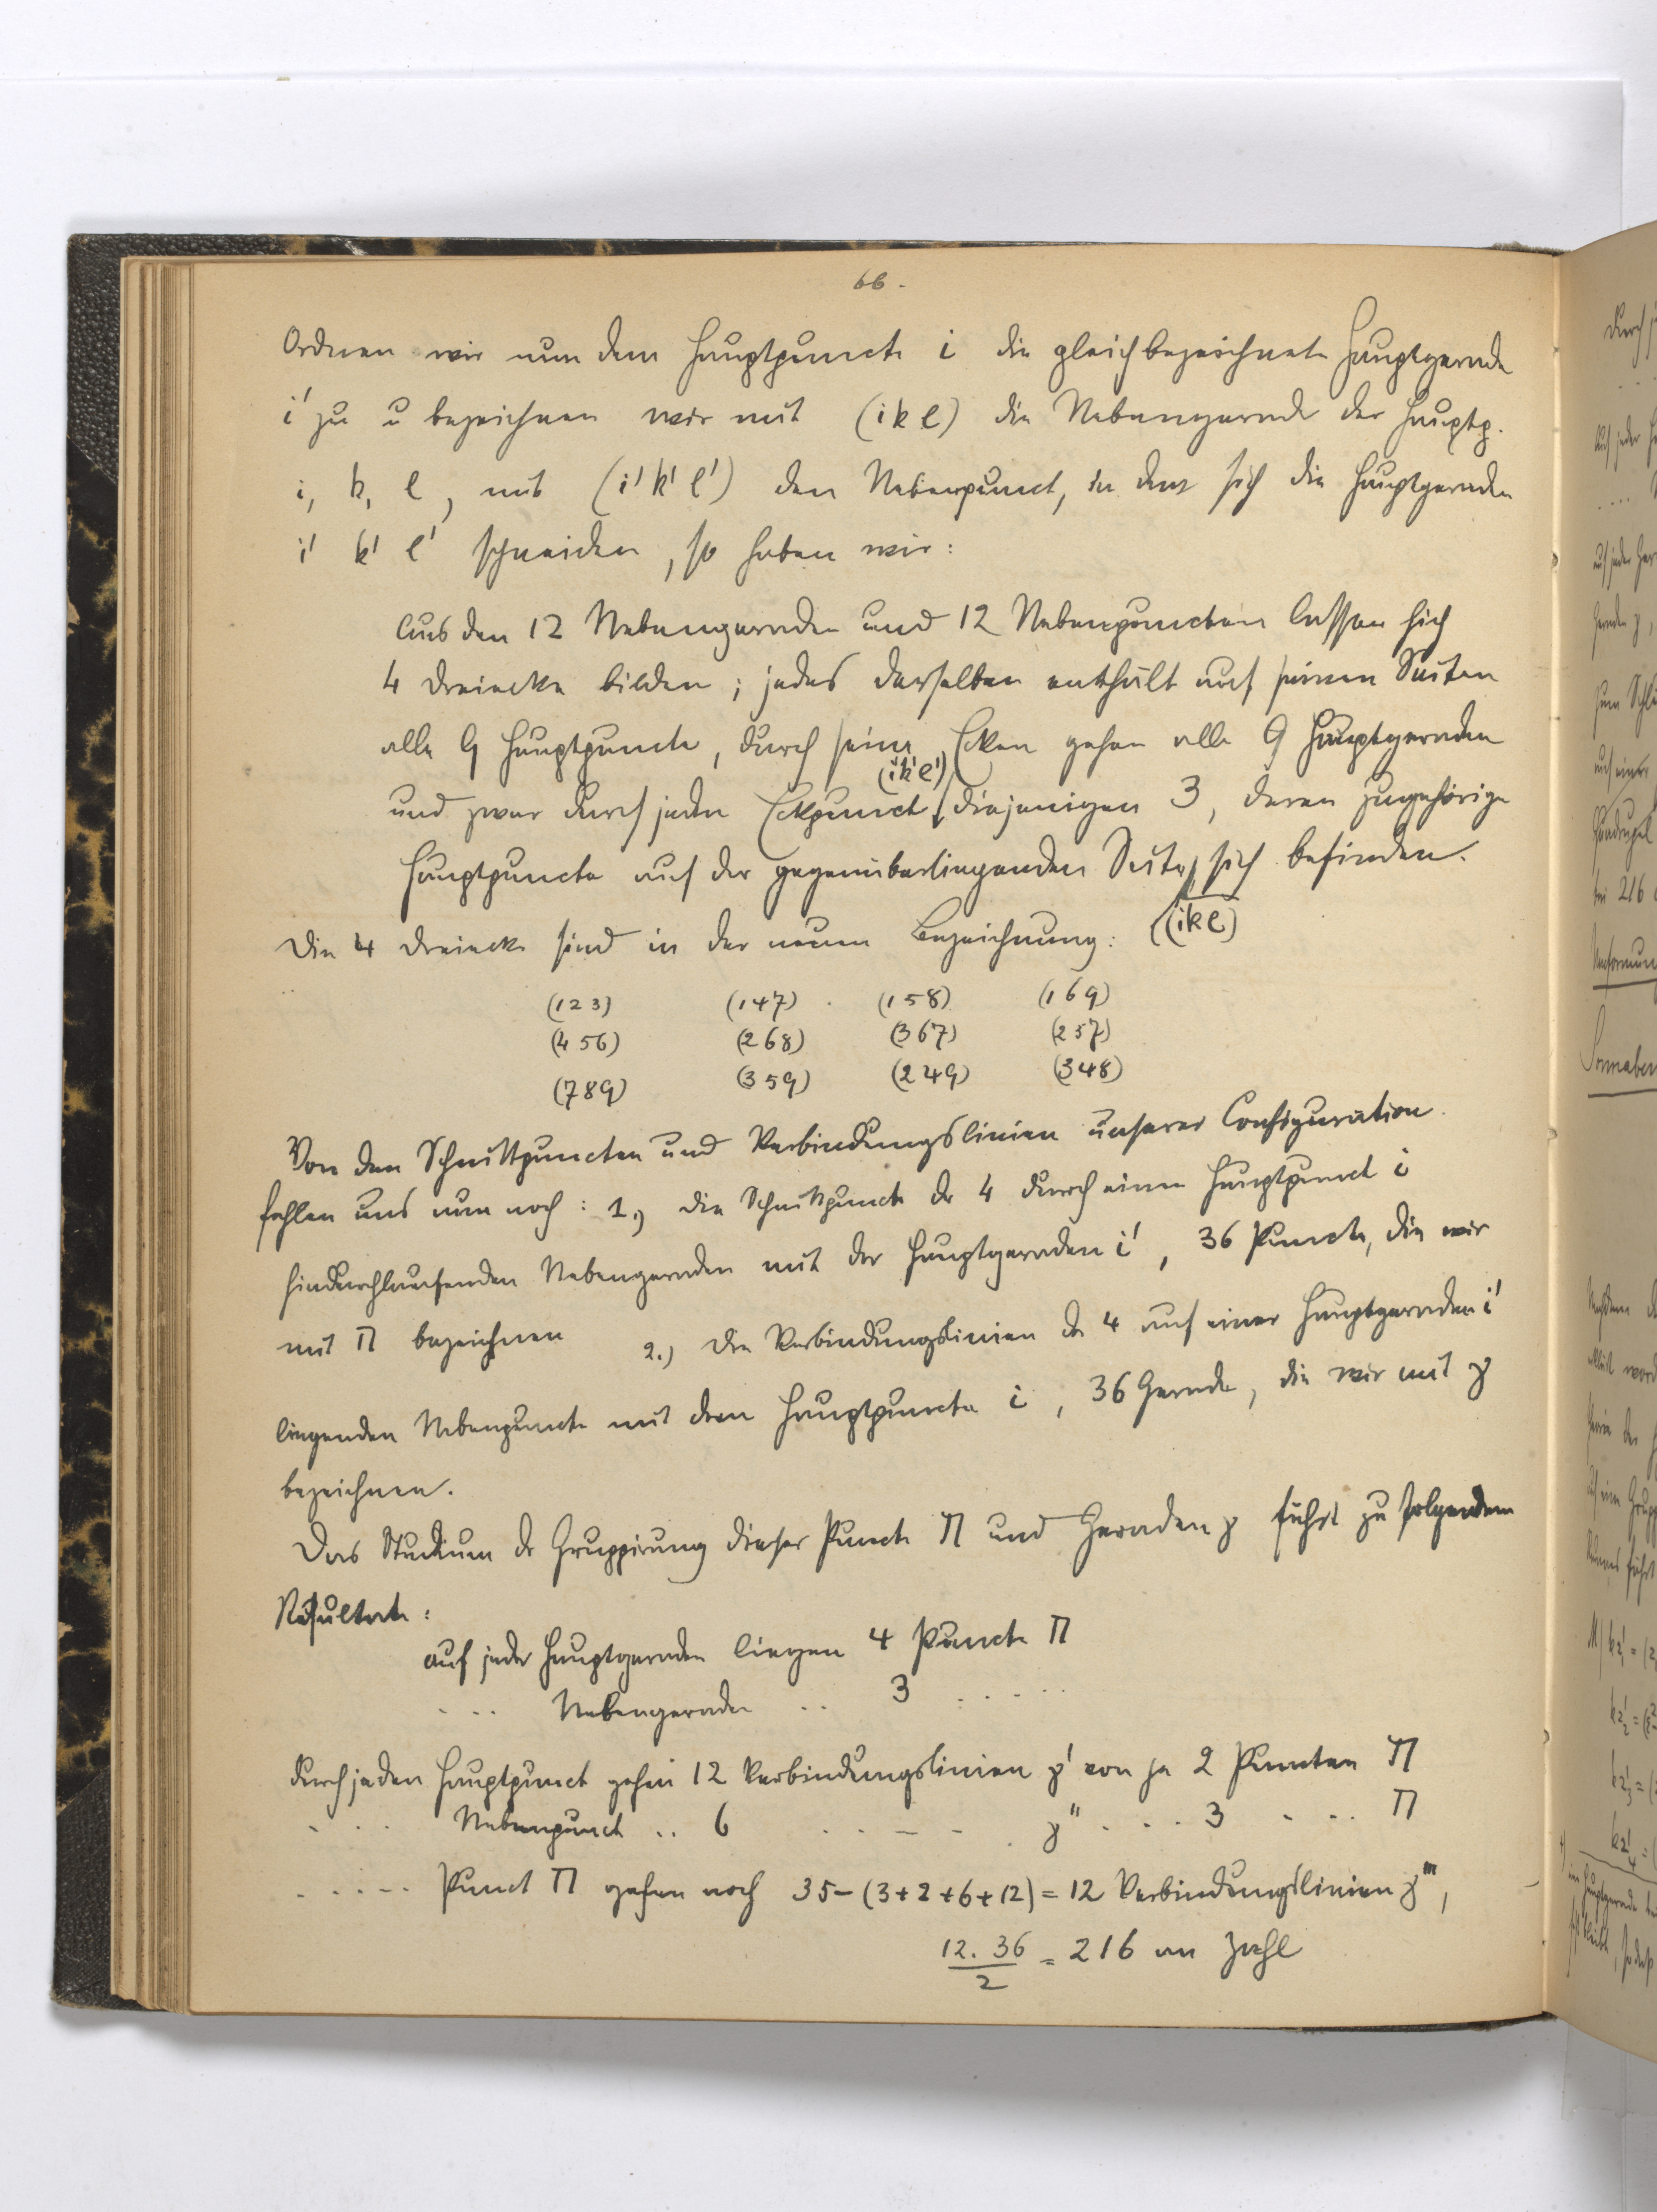 66.
Ordnen wir nun dem Hauptpuncte i die gleichbezeichnete Hauptgerade
i' zu u bezeichnen wir mit (ikl) die Nebengerade der Hauptp.
i, k, l, mit (i'k'l') den Nebenpunct, in dem sich die Hauptgeraden
i' k' l' schneiden, so haben wir:
Aus den 12 Nebengeraden und 12 Nebenpuncten lassen sich
4 Dreiecke bilden; jedes derselben enthält auf seinen Seiten
alle 9 Hauptpuncte, durch seine Ecken gehen alle 9 Hauptgeraden
(i'k'l')
und zwar durch jeden Eckpunct diejenigen 3, deren zugehörige
Hauptpuncte auf der gegenüberliegenden Seite sich befinden.
(ikl)
Die 4 Dreiecke sind in der neuen Bezeichnung:
(123) (147) (158) (169)
(456) (268) (367) (257)
(789) (359) (249) (348)
Von den Schnittpuncten und Verbindungslinien unserer Configuration
fehlen uns nun noch: 1.) die Schnittpuncte der 4 durch einen Hauptpunct i
hindurchlaufenden Nebengeraden mit der Hauptgeraden i', 36 Puncte, die wir
mit Π bezeichnen 2.) die Verbindungslinien der 4 auf einer Hauptgeraden i'
liegenden Nebenpuncte mit dem Hauptpuncte i, 36 Gerade, die wir mit γ
bezeichnen.
Das Studium der Gruppirung dieser Puncte Π und Geraden γ führt zu folgendem
Resultate:
auf jeder Hauptgeraden liegen 4 Puncte Π
. . . Nebengeraden .. 3 . . . . .
durch jeden Hauptpunct gehen 12 Verbindungslinien γ' von je 2 Puncten Π
. . . Nebenpunct .. 6 . . – – . γ'' . . . 3 . . . Π
. . . . . Punct Π gehen noch 35-(3+2+6+12) = 12 Verbindungslinien γ''',
12. 36 / 2 = 216 an Zahl